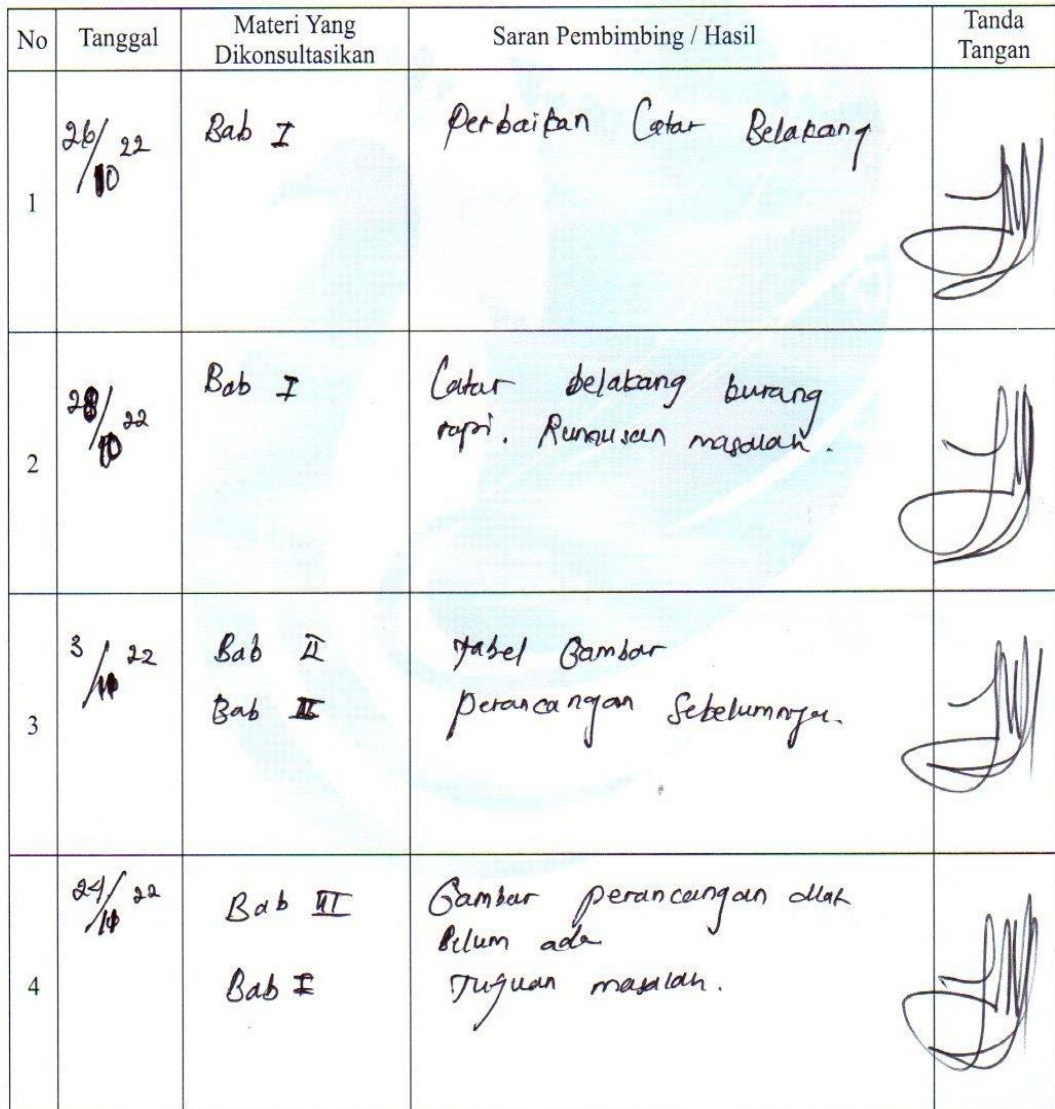 No Tanggal Materi Yang Dikonsultasikan Saran Pembimbing / Hasil Tanda Tangan
1 26/10 22 Bab I Perbaikan Latar Belakang
2 28/10 22 Bab I Latar belakang kurang
rapi. Rumusan masalah.
3 3/11 22 Bab II Tabel Gambar
Bab III perancangan Sebelumnya.
4 24/11 22 Bab III Gambar perancangan alat
Belum ada
Bab I Tujuan masalah.